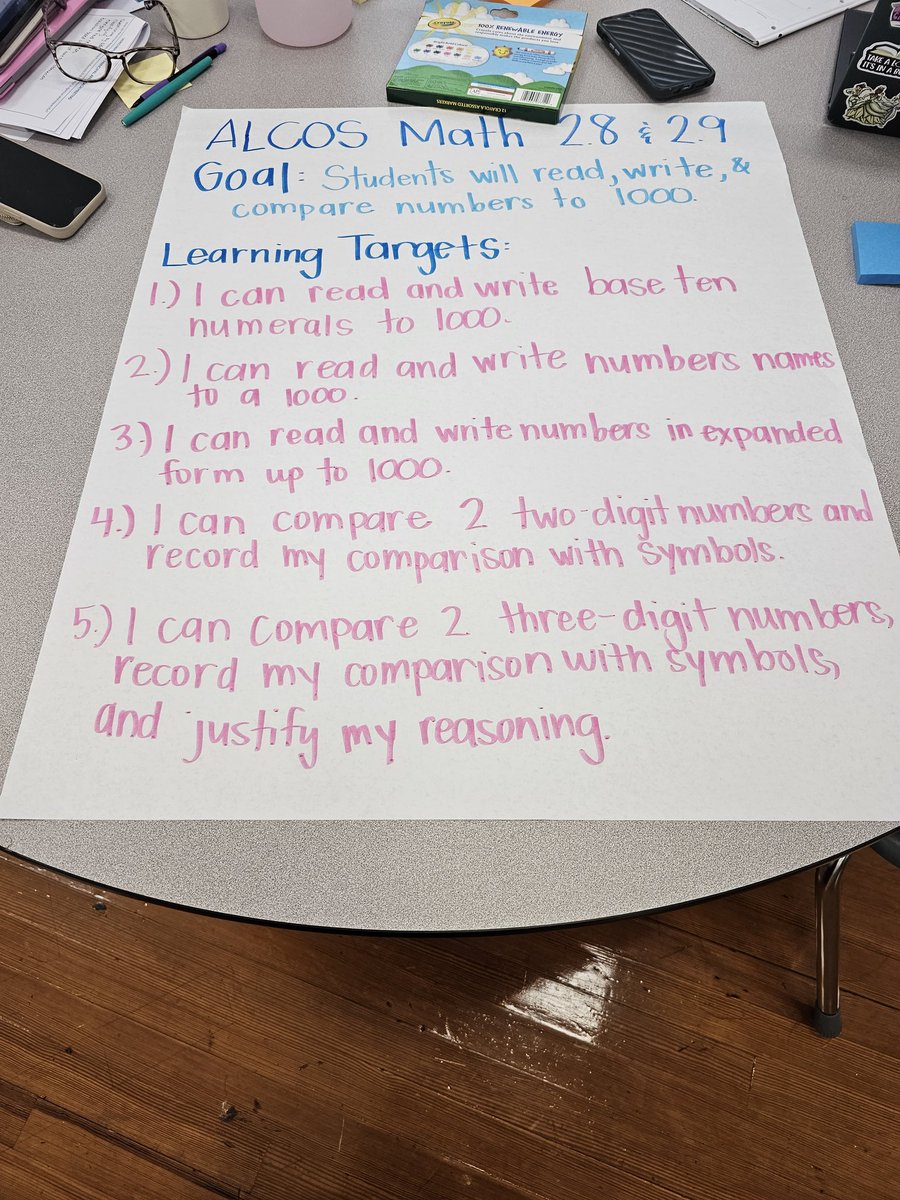 100% RENEWABLE ENERGY
12 CRAYOLA ASSORTED MARKERS
ALCOS Math 2.8 & 2.9
Goal: Students will read, write, &
compare numbers to 1000.
Learning Targets:
1.) I can read and write base ten
numerals to 1000.
2.) I can read and write numbers names
to a 1000.
3.) I can read and write numbers in expanded
form up to 1000.
4.) I can compare 2 two-digit numbers and
record my comparison with symbols.
5.) I can compare 2 three-digit numbers,
record my comparison with symbols,
and justify my reasoning.